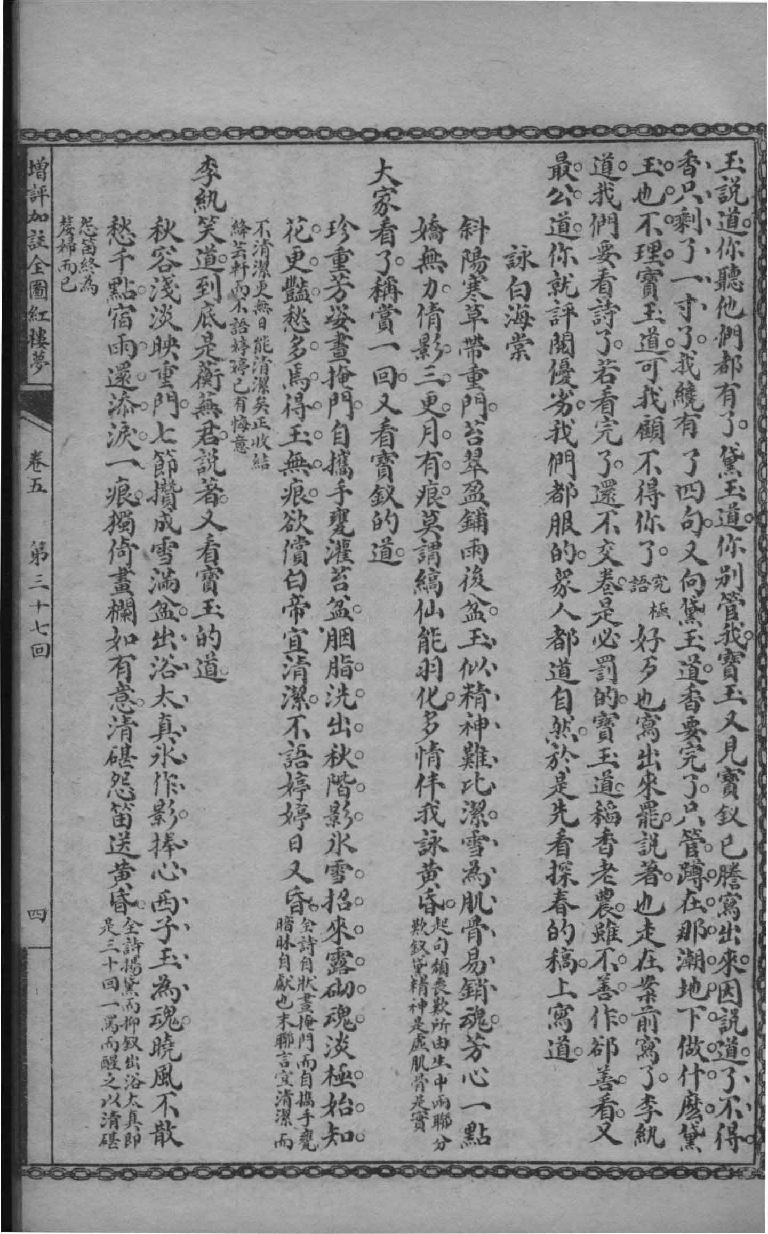 玉說道你聽他們都有了黛玉道你別管我寶玉又見寶釵已謄寫出來因說道了不得
香只剩了一寸了我纔有了四句又向黛玉道香要完了只管蹲在那潮地下做什麼黛
玉也不理寶玉道可我顧不得你了究極語好歹也寫出來罷說著也走在案前寫了李紈
道我們要看詩了若看完了還不交卷是必罰的寶玉道稻香老農雖不善作卻善看又
最公道你就評閱優劣我們都服的眾人都道自然於是先看探春的稿上寫道
詠白海棠
斜陽寒草帶重門苔翠盈鋪雨後盆玉似精神難比潔雪為肌骨易銷魂芳心一點
嬌無力倩影三更月有痕莫謂縞仙能羽化多情伴我詠黃昏起句頹喪歎所由生中兩聯分
歎釵黛精神是虛肌骨是實
大家看了稱賞一回又看寶釵的道
珍重芳姿晝掩門自攜手甕灌苔盆胭脂洗出秋階影冰雪招來露砌魂淡極始知
花更豔愁多焉得玉無痕欲償白帝宜清潔不語婷婷日又昏全詩自狀晝掩門而自攜手甕
自獻也末聯言宜清潔而
不清潔更無日能清潔矣正收結
絳芸軒而不語婷婷已有悔意
李紈笑道到底是蘅蕪君說著又看寶玉的道
秋容淺淡映重門七節攢成雪滿盆出浴太真冰作影捧心西子玉為魂曉風不散
愁千點宿雨還添淚一痕獨倚畫欄如有意清砧怨笛送黃昏全詩揚黛而抑釵出浴太真即
是三十回一罵而醒之以清砧
怨笛終為
嫠婦而已
增評加註全圖紅樓夢
卷五
第三十七回
四